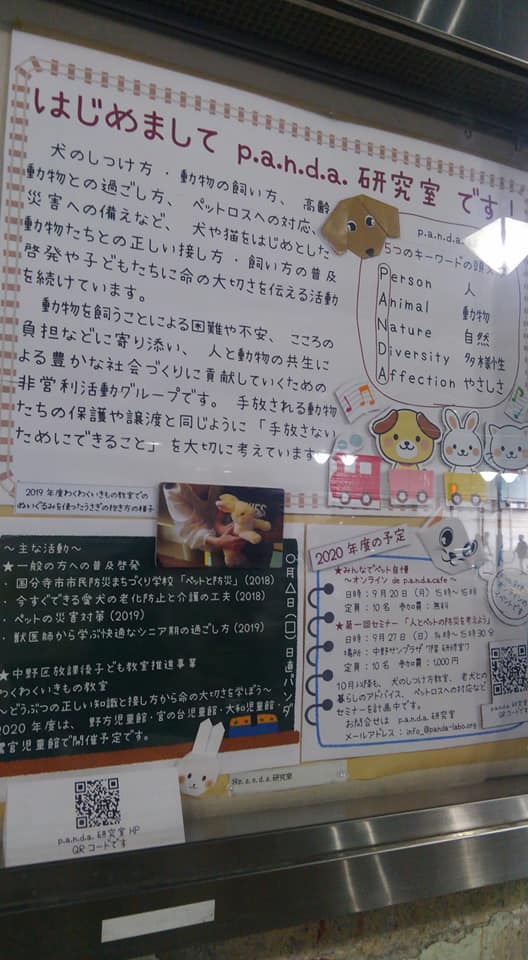 はじめまして p.a.n.d.a. 研究室 です！
犬のしつけ方・動物の飼い方、高齢
動物との過ごし方、ペットロスへの対応、
災害への備えなど、犬や猫をはじめとした
動物たちとの正しい接し方・飼い方の普及
啓発や子どもたちに命の大切さを伝える活動
を続けています。
動物を飼うことによる困難や不安、こころの
負担などに寄り添い、人と動物の共生に
よる豊かな社会づくりに貢献していくための
非営利活動グループです。手放される動物
たちの保護や譲渡と同じように「手放さない
ためにできること」を大切に考えています
p.a.n.d.a.
5つのキーワードの頭
Person 人
Animal 動物
Nature 自然
Diversity 多様性
Affection やさしさ
2019年度わくわくいきもの教室での
ぬいぐるみを使ったうさぎの抱き方の様子
～主な活動～
★一般の方への普及啓発
・国分寺市市民防災まちづくり学校「ペットと防災」(2018)
・今すぐできる愛犬の老化防止と介護の工夫(2018)
・ペットの災害対策(2019)
・獣医師から学ぶ快適なシニア期の過ごし方(2019)
★中野区放課後子ども教室推進事業
わくわくいきもの教室
～どうぶつの正しい知識と接し方から命の大切さを学ぼう～
2020年度は、野方児童館・宮の台児童館・大和児童館・
鷺宮児童館で開催予定です。
〇月△日(□)日直パンダ
2020年度の予定
★みんなでペット自慢
～オンライン de p.a.n.d.a.cafe～
日時：9月20日(月)15時～16時
定員：10名 参加費：無料
★第一回セミナー「人とペットの防災を考えよう」
日時：9月27日(日)14時～15時30分
場所：中野サンプラザ 7階 研修室
定員：10名 参加費：1,000円
10月以降も、犬のしつけ方教室、老犬との
暮らしのアドバイス、ペットロスへの対応など
セミナーを計画中です。
お問合せは p.a.n.d.a. 研究室
メールアドレス：info_@panda-labo.org
p.a.n.d.a. 研究室
QRコード
No.p.a.n.d.a.研究室
p.a.n.d.a. 研究室 HP
QRコードです